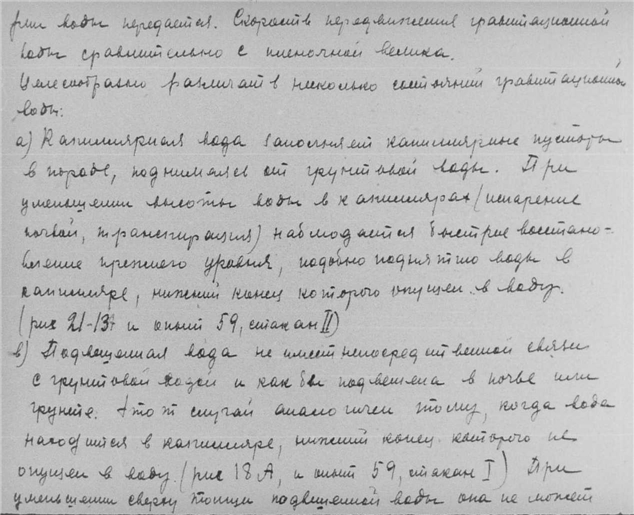 воды передается. Скорость передвижения гравитационной
воды сравнительно с пленочной велика.
Целесообразно различать несколько состояний гравитационной
воды:
а) Капиллярная вода заполняет капиллярные пустоты
в породе, поднимаясь от грунтовой воды. При
уменьшении высоты воды в капиллярах (испарение
почвой, транспирация) наблюдается быстрое восстано-
вление прежнего уровня, подобно поднятию воды в
капилляре, нижний конец которого опущен в воду.
(рис 21-13 и опыт 59, стакан II)
в) Подвешенная вода не имеет непосредственной связи
с грунтовой водой и как бы подвешена в почве или
грунте. Этот случай аналогичен тому, когда вода
находится в капилляре, нижний конец которого не
опущен в воду. (рис 18 А, и опыт 59, стакан I) При
уменьшении сверху толщи подвешенной воды она не может